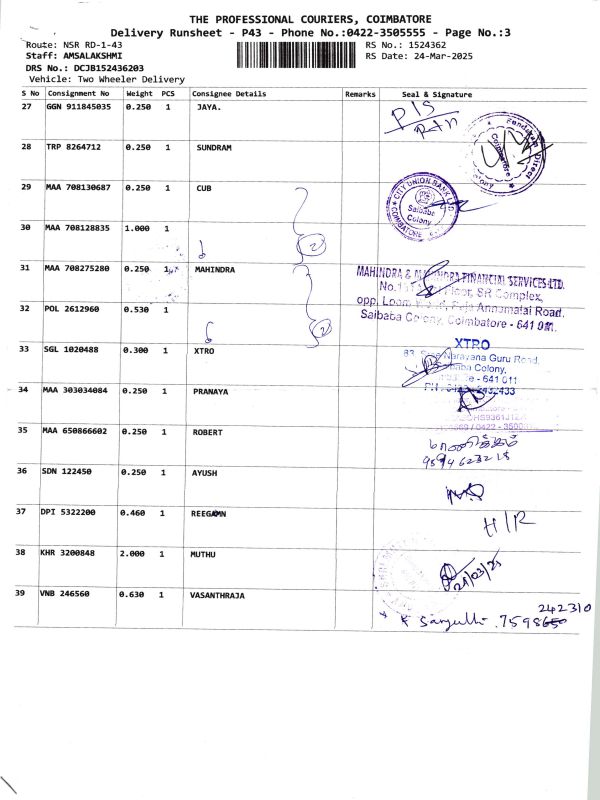 THE PROFESSIONAL COURIERS, COIMBATORE
Delivery Runsheet - P43 - Phone No.:0422-3505555 - Page No.:3
Route: NSR RD-1-43 RS No.: 1524362
Staff: AMSALAKSHMI RS Date: 24-Mar-2025
DRS No.: DCJB152436203
Vehicle: Two Wheeler Delivery
S No Consignment No Weight PCS Consignee Details Remarks Seal & Signature
27 GGN 911845035 0.250 1 JAYA.
28 TRP 8264712 0.250 1 SUNDRAM
29 MAA 708130687 0.250 1 CUB
CITY UNION BANK LTD
Saibaba
Colony
COIMBATORE
30 MAA 708128835 1.000 1
2
31 MAA 708275280 0.250 1 MAHINDRA
MAHINDRA & MAHINDRA FINANCIAL SERVICES LTD.
SR Complex,
Annamalai Road,
Saibaba Colony, Coimbatore - 641 011.
32 POL 2612960 0.530 1
2
33 SGL 1020488 0.300 1 XTRO
XTRO
Narayana Guru Road,
Saibaba Colony,
641 011
34 MAA 303034084 0.250 1 PRANAYA
35 MAA 650866602 0.250 1 ROBERT
36 SDN 122450 0.250 1 AYUSH
37 DPI 5322200 0.460 1 REEGAMN
H/R
38 KHR 3200848 2.000 1 MUTHU
24/03/25
39 VNB 246560 0.630 1 VASANTHRAJA
242310
7598